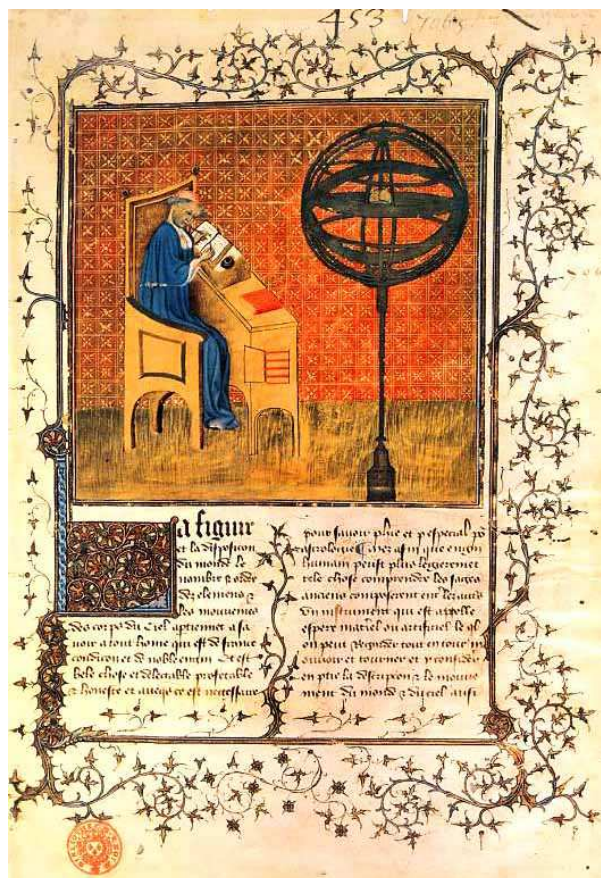 453
7065
La figure
et la disposicion
du monde le
nombre & ordre
des elemens &
les mouvemens
des corps du ciel aptienent a sa
voir a tout home qui est de franche
condicion et de noble engin Et est
bele chose et delectable profitable
& honeste et avecqs ce est necessaire
pour savoir et p especial po
astrologie Mez afin que engin
humain peust plus legierement
tele chose comprendre les sages
anciens composerent entre les autres
Un instrument qui est appelle
espere materiel ou artificiel le ql
on peut regarder tout entour m
ouvoir et tourner et y considerer
en ptie la descripcion & le mouve
ment du monde & du ciel aussi